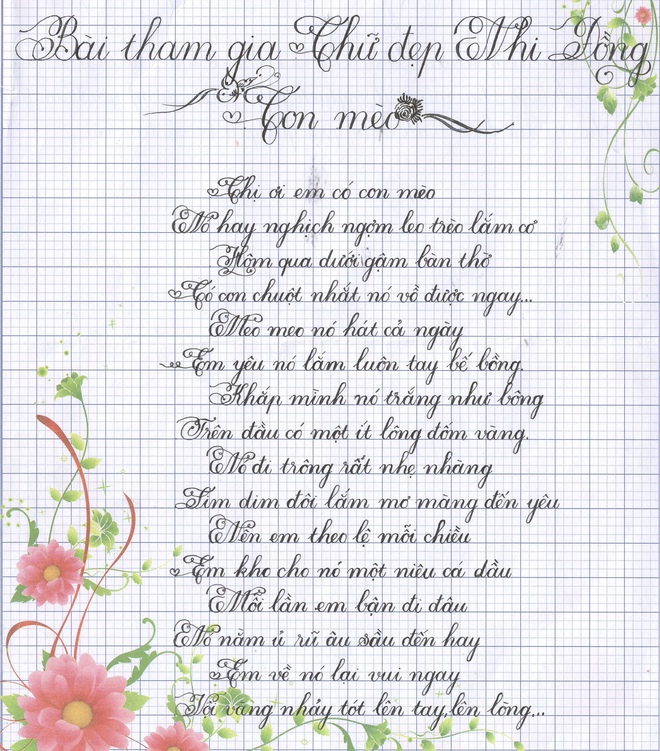 Bài tham gia Chữ đẹp Nhi Đồng
Con mèo
Chị ơi em có con mèo
Nó hay nghịch ngợm leo trèo lắm cơ
Hôm qua dưới gậm bàn thờ
Có con chuột nhắt nó vồ được ngay...
Meo meo nó hát cả ngày
Em yêu nó lắm luôn tay bế bồng.
Khắp mình nó trắng như bông
Trên đầu có một ít lông đốm vàng.
Nó đi trông rất nhẹ nhàng
Lim dim đôi lắm mơ màng đến yêu
Nên em theo lệ mỗi chiều
Em kho cho nó một niêu cá dầu
Mỗi lần em bận đi đâu
Nó nằm ủ rũ âu sầu đến hay
Em về nó lại vui ngay
Vội vàng nhảy tót lên tay, lên lòng...